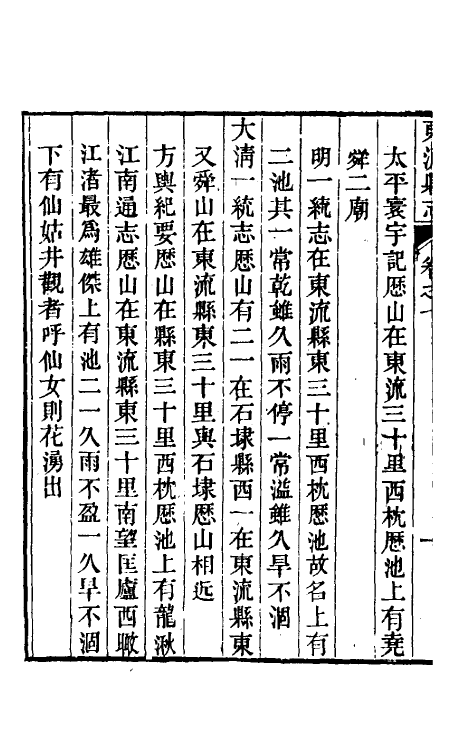 東流縣志
卷之
一
太平寰宇記歴山在東流三十里西枕歴池上有堯
舜二廟
明一統志在東流縣東三十里西枕歴池故名上有
二池其一常乾雖久雨不停一常溢雖久旱不涸
大清一統志歴山有二一在石埭縣西一在東流縣東
又舜山在東流縣東三十里與石埭歴山相近
方輿紀要歴山在縣東三十里西枕歴池上有龍湫
江南通志歴山在東流縣東三十里南望匡廬西瞰
江渚最爲雄傑上有池二一久雨不盈一久旱不涸
下有仙姑井觀者呼仙女則花湧出